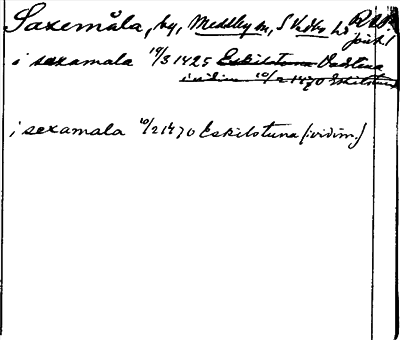 Saxemåla, by, Medelby sn, S Vedbo hd
i sexamala 19/3 1425 Eskilstuna Vadstena
i vidim. 10/2 1470 Eskilstuna
i sexamala 10/2 1470 Eskilstuna (:vidim.)